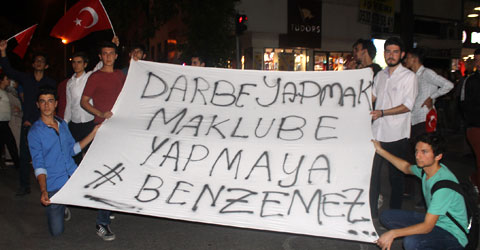 TUDORS
DARBE YAPMAK
MAKLUBE
YAPMAYA
# BENZEMEZ...